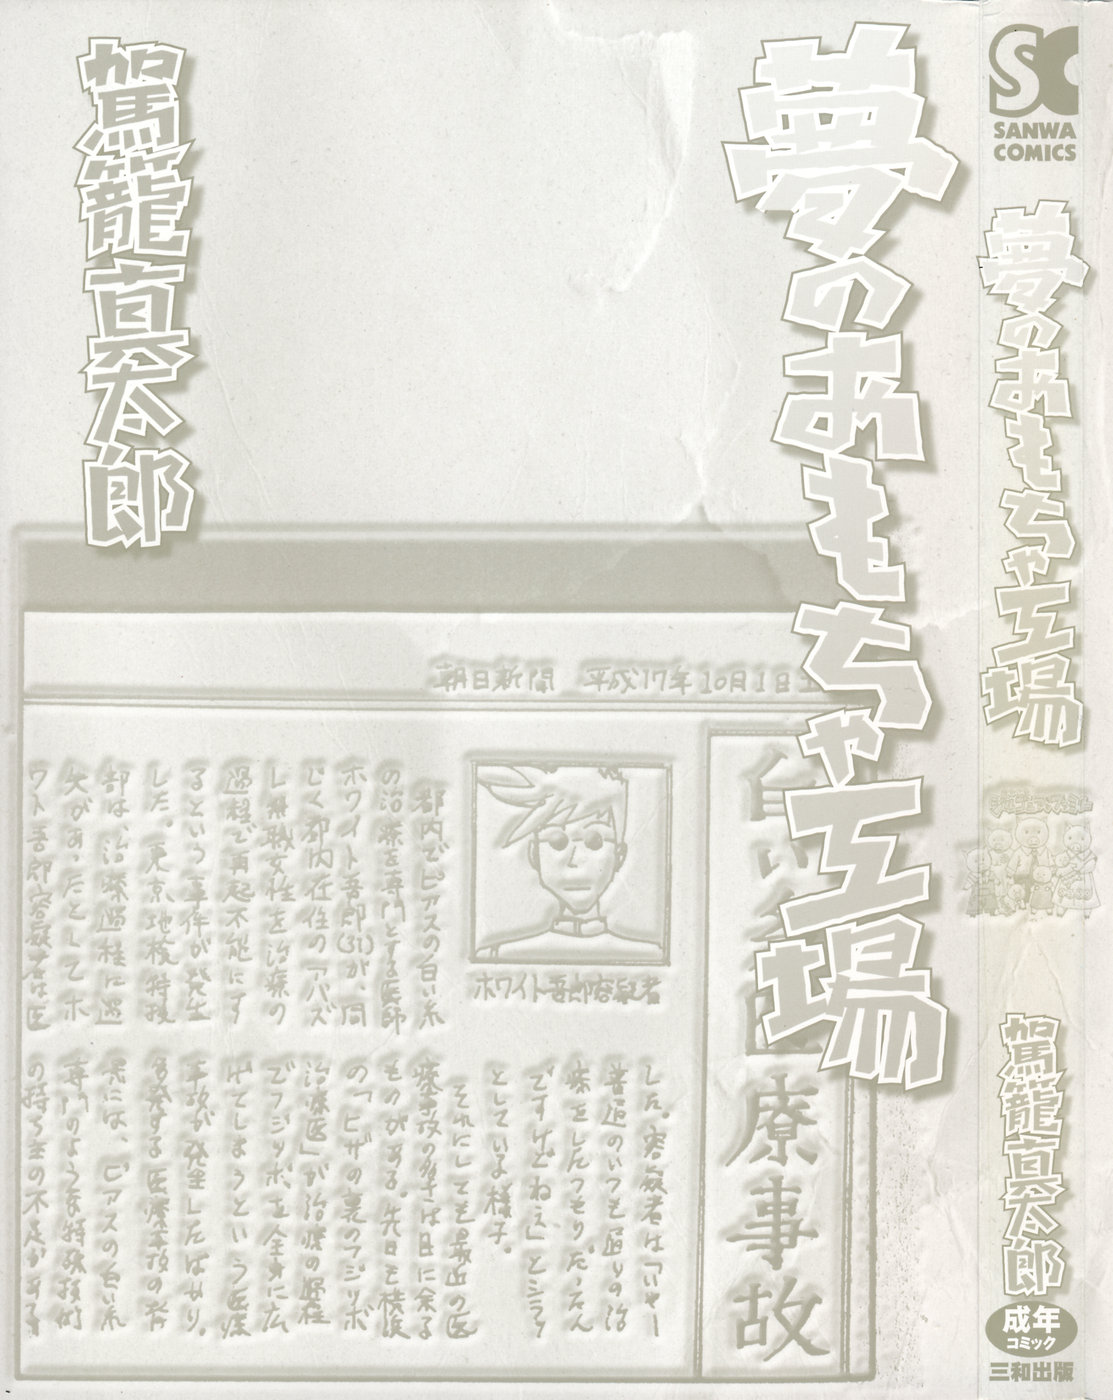 夢のおもちゃ工場
駕籠真太郎
SANWA
COMICS
夢のおもちゃ工場
駕籠真太郎
成年
コミック
三和出版
朝日新聞 平成17年10月1日
白い
医療事故
ホワイト吾郎容疑者
都内でピアスの白い糸
の治療を専門とする医師
ホワイト吾郎(31)が、同
じく都内在住のアバズ
レ無職女性を治療の
過程で再起不能にす
るという事件が発生
した。東京地検特捜
部は、治療過程に過
失があったとしてホ
ワイト吾郎容疑者は医
した。容疑者は「いやー
普通のいつも通りの治
療をしたつもりだったん
ですけどねぇ」とシラッ
としている様子。
それにしても最近の医
療事故の多さは目に余る
ものがある。先日も横浜
の「ヒザの裏のフジツボ
治療医」が治療の過程
でフジツボを全身に広
げてしまうという医療
事故が発生したばかり。
多発する医療事故の背
景には、ピアスの白い糸
専門のような特殊技術
の持ち主の不足がある